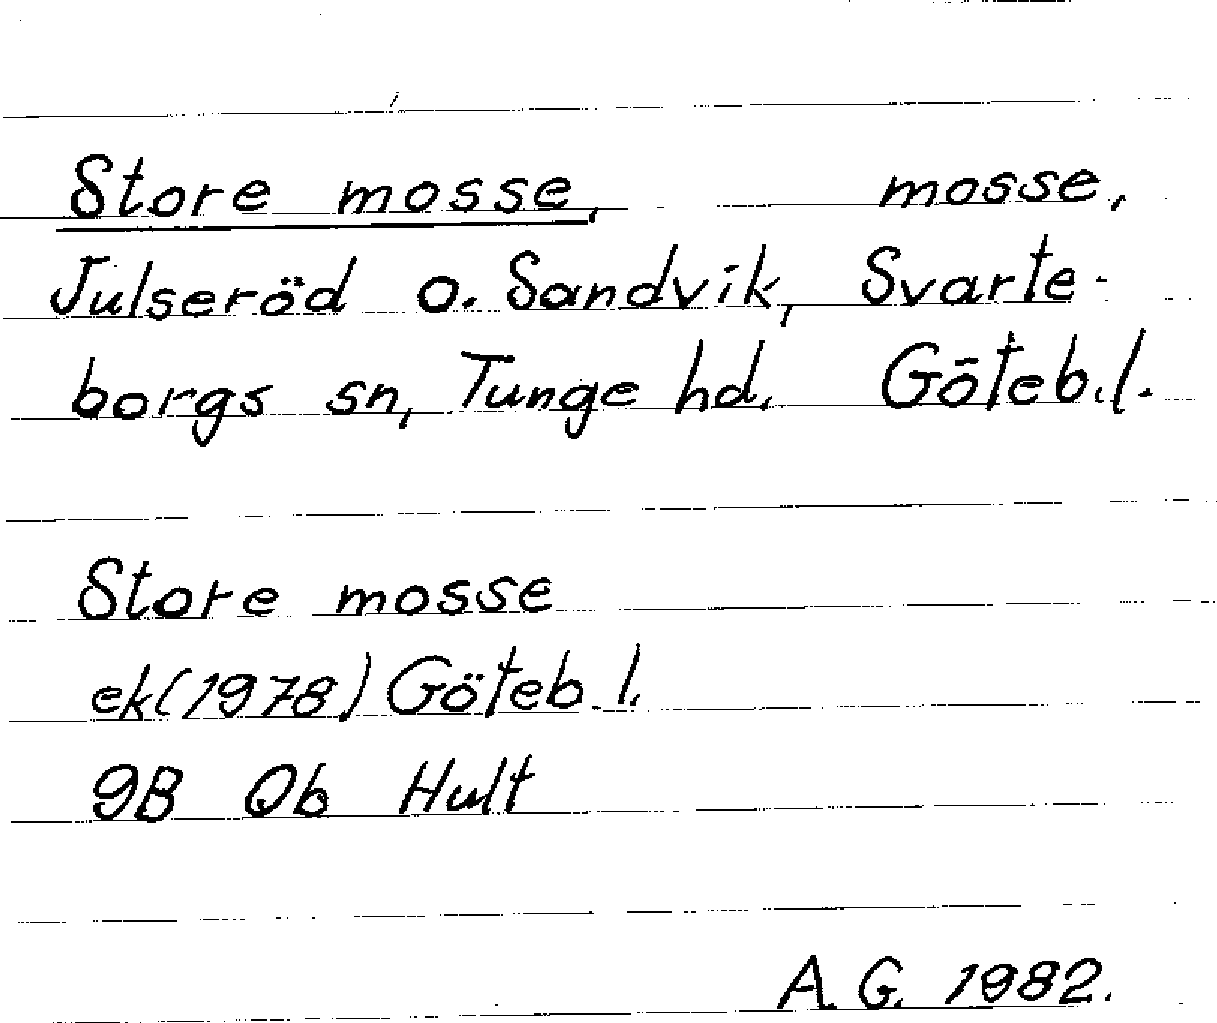 Store mosse, mosse,
Julseröd o. Sandvik, Svarte-
borgs sn, Tunge hd. Göteb. l.
Store mosse
ek (1978) Göteb. l.
9B 0b Hult
A. G. 1982.